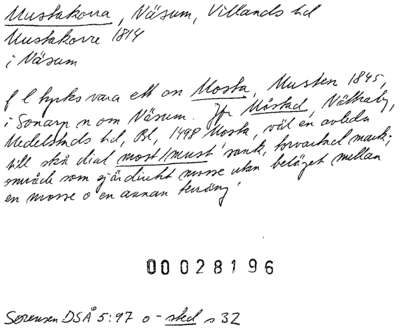 Mustakorra, Näsum, Villands hd
Mustakorre 1814
i Näsum
f l tycks vara ett on Mosta, Musten 1845,
i Sonarp n om Näsum. Jfr Måstad, Nättraby,
Medelstads hd, Bl, 1498 Mosta, väl en avledn
till skå dial most/must 'sank, torvartad mark;
område som ej är direkt mosse utan beläget mellan
en mosse o en annan terräng'
00028196
Sørensen DSÅ 5:97 o -sted s 32